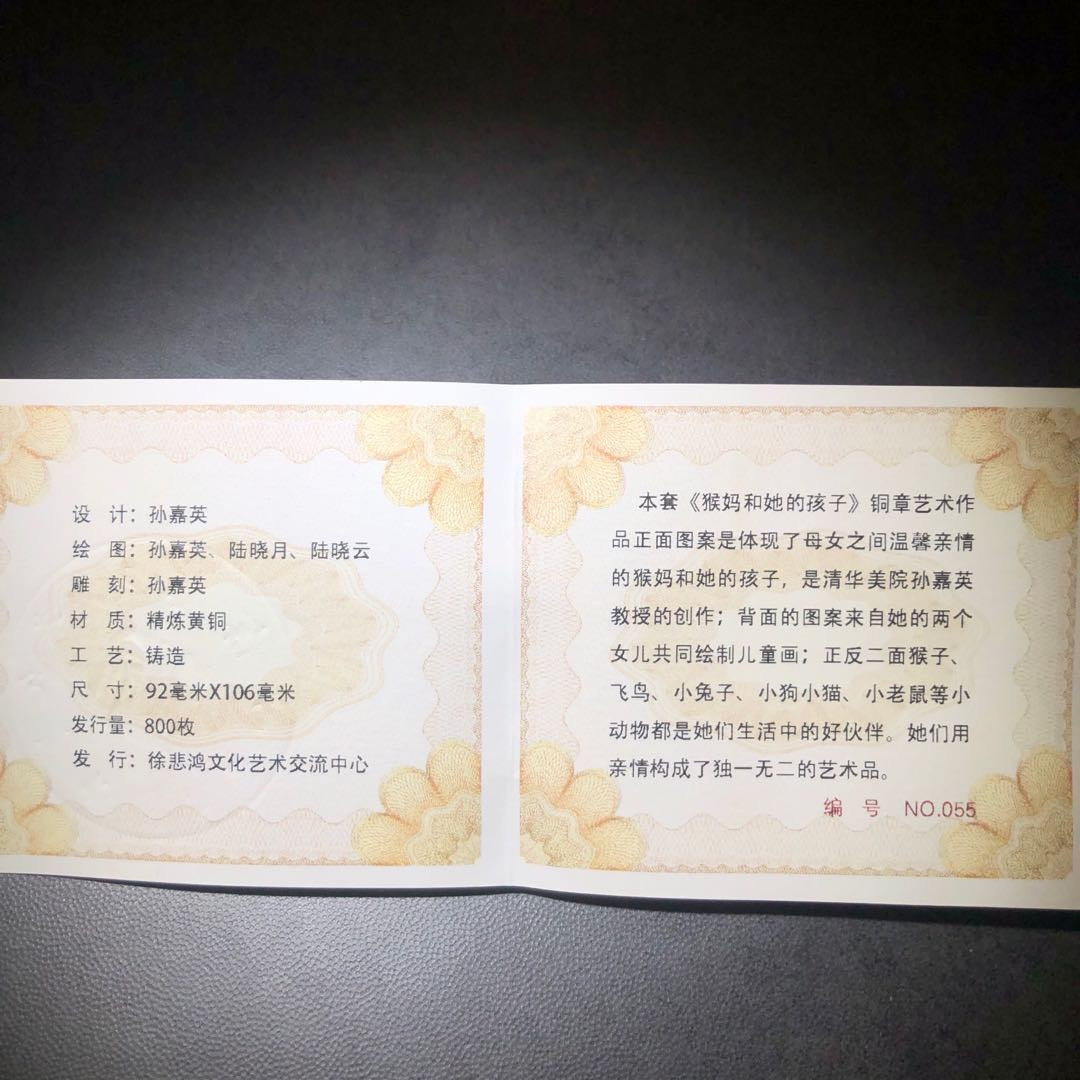 设 计：孙嘉英
绘 图：孙嘉英、陆晓月、陆晓云
雕 刻：孙嘉英
材 质：精炼黄铜
工 艺：铸造
尺 寸：92毫米X106毫米
发行量：800枚
发 行：徐悲鸿文化艺术交流中心
本套《猴妈和她的孩子》铜章艺术作
品正面图案是体现了母女之间温馨亲情
的猴妈和她的孩子，是清华美院孙嘉英
教授的创作；背面的图案来自她的两个
女儿共同绘制儿童画；正反二面猴子、
飞鸟、小兔子、小狗小猫、小老鼠等小
动物都是她们生活中的好伙伴。她们用
亲情构成了独一无二的艺术品。
编 号 NO.055